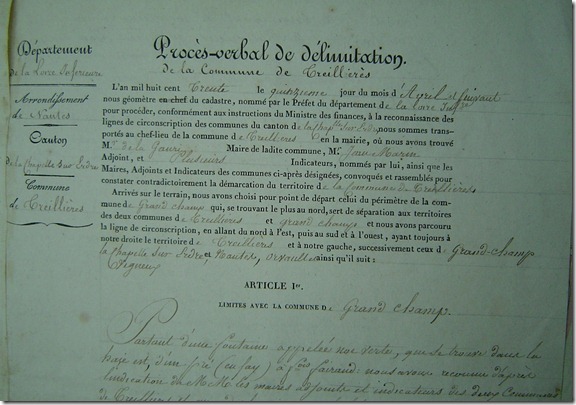 Département
de la Loire Inférieure
Arrondissement
de Nantes
Canton
de la Chapelle sur Erdre
Commune
de Treillières
Procès-verbal de délimitation.
de la Commune de Treillières
L'an mil huit cent Trente le quinzième jour du mois d'Avril et suivant
nous géomètre en chef du cadastre, nommé par le Préfet du département de la Loire Infre
pour procéder, conformément aux instructions du Ministre des finances, à la reconnaissance des
lignes de circonscription des communes du canton de la Chaplle sur Erdre, nous sommes trans-
portés au chef-lieu de la commune de Treillières en la mairie, où nous avons trouvé
Mr. de la Maire de ladite commune, Mr. Jean Marin
Adjoint, et Plusieurs Indicateurs, nommés par lui, ainsi que les
Maires, Adjoints et Indicateurs des communes ci-après désignées, convoqués et rassemblés pour
constater contradictoirement la démarcation du territoire de la Commune de Treillières
Arrivés sur le terrain, nous avons choisi pour point de départ celui du périmètre de la com-
mune de Grand champ qui, se trouvant le plus au nord, sert de séparation aux territoires
des deux communes de Treillières et grand champ et nous avons parcouru
la ligne de circonscription, en allant du nord à l'est, puis au sud et à l'ouest, ayant toujours à
notre droite le territoire de Treillières et à notre gauche, successivement ceux de Grand-champ
la Chapelle sur Erdre, et Nantes, Orvault ainsi qu'il suit :
Vigneux
ARTICLE Ier.
LIMITES AVEC LA COMMUNE De Grand champ.
Partant d'une fontaine appelée noe verte, que se trouve dans la
haie est, d'un pré à fois nous avons reconnu d'après
l'indication de MM. les maires adjoints et indicateurs des deux Communes
de Treillières et